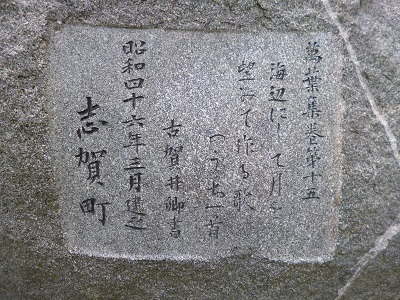 萬葉集巻第十五
海辺にして月を
望みて作る歌
のうち一首
古賀井卿書
昭和四十六年三月建之
志賀町